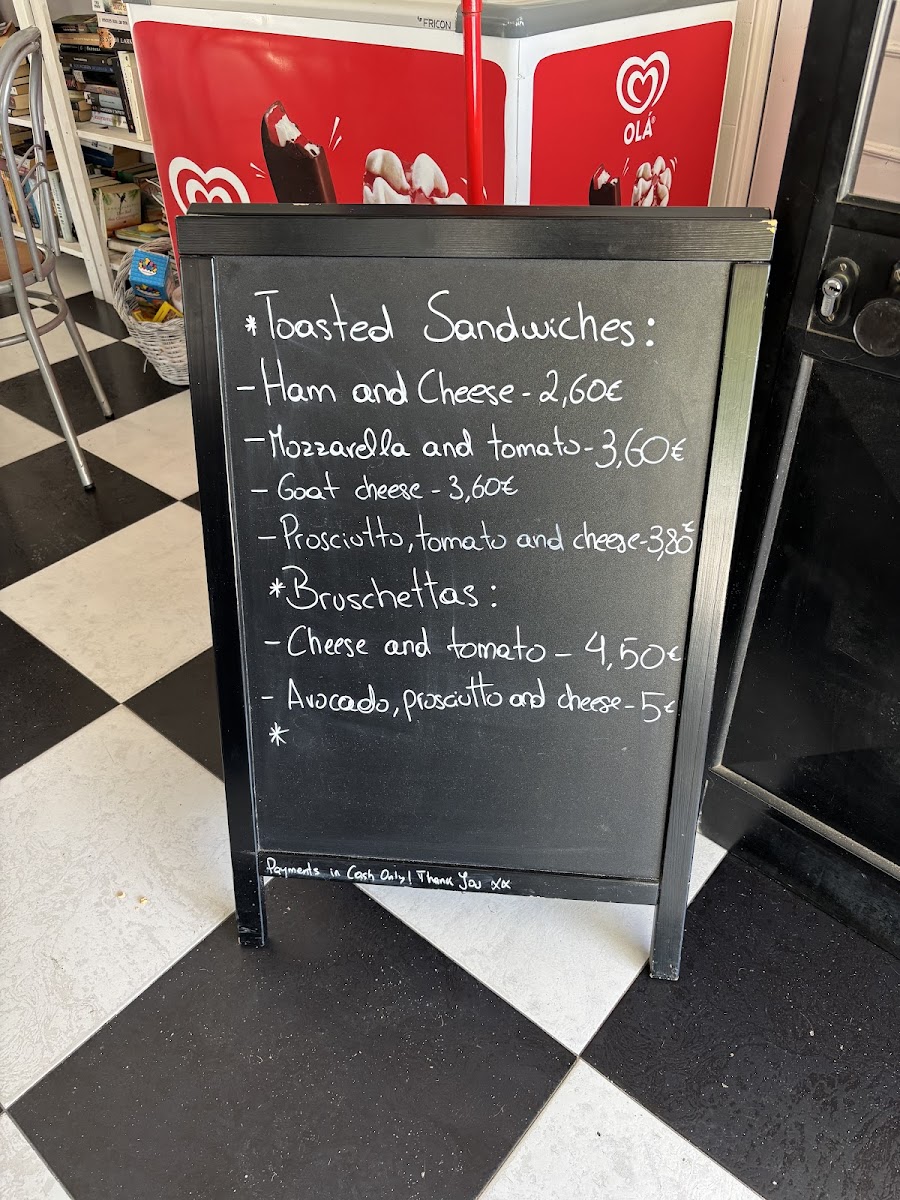 FRICON
OLÁ
*Toasted Sandwiches:
- Ham and Cheese - 2,60€
- Mozzarella and tomato - 3,60€
- Goat cheese - 3,60€
- Prosciutto, tomato and cheese - 3,80€
*Bruschettas:
- Cheese and tomato - 4,50€
- Avocado, prosciutto and cheese - 5€
*
Payments in Cash Only! Thank You xx